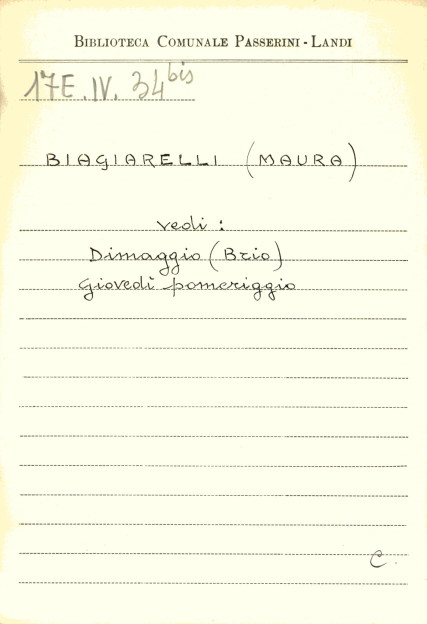 BIBLIOTECA COMUNALE PASSERINI - LANDI
17E. IV. 34 bis
BIAGIARELLI (MAURA)
vedi :
Dimaggio (Brio)
Giovedì pomeriggio
C.